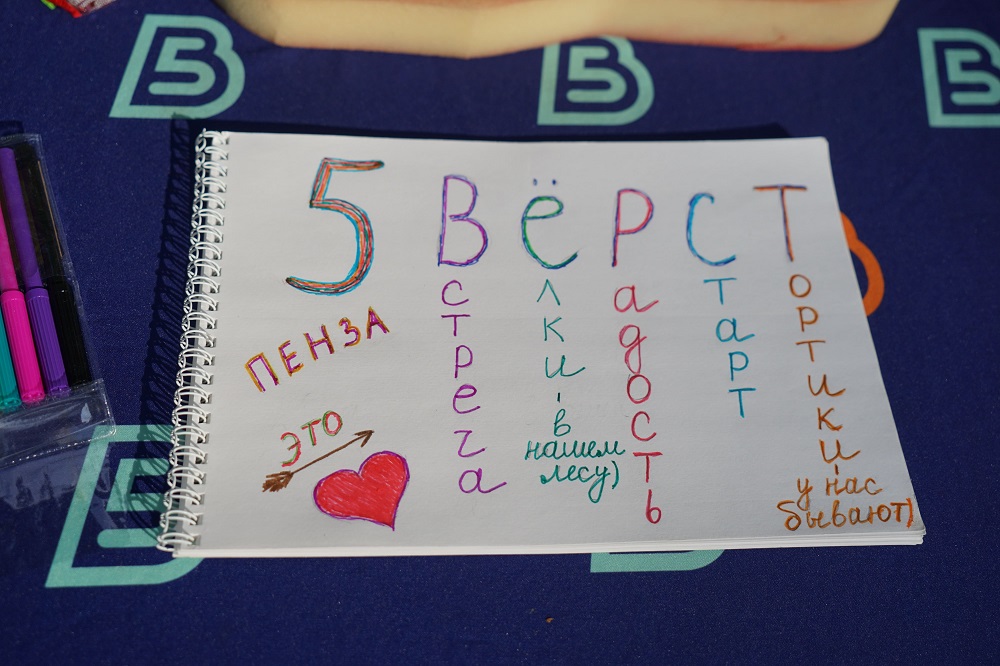 5 ВЁРСТ
ПЕНЗА
ЭТО
Встреча
Ёлки - в
нашем
лесу)
Радость
Старт
Тортики -
у нас
бывают)